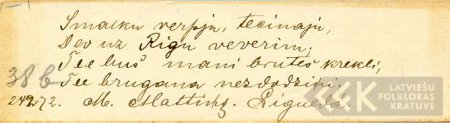 Smalku verpju, tecinaju,
Dev uz Rigu veverim;
Tee bus mani brutes krekli,
38 b Tee brugana nezdodziņi.
24272. M. Mattiņš. Siguldā.
LATVIEŠU
FOLKLORAS
KRĀTUVE